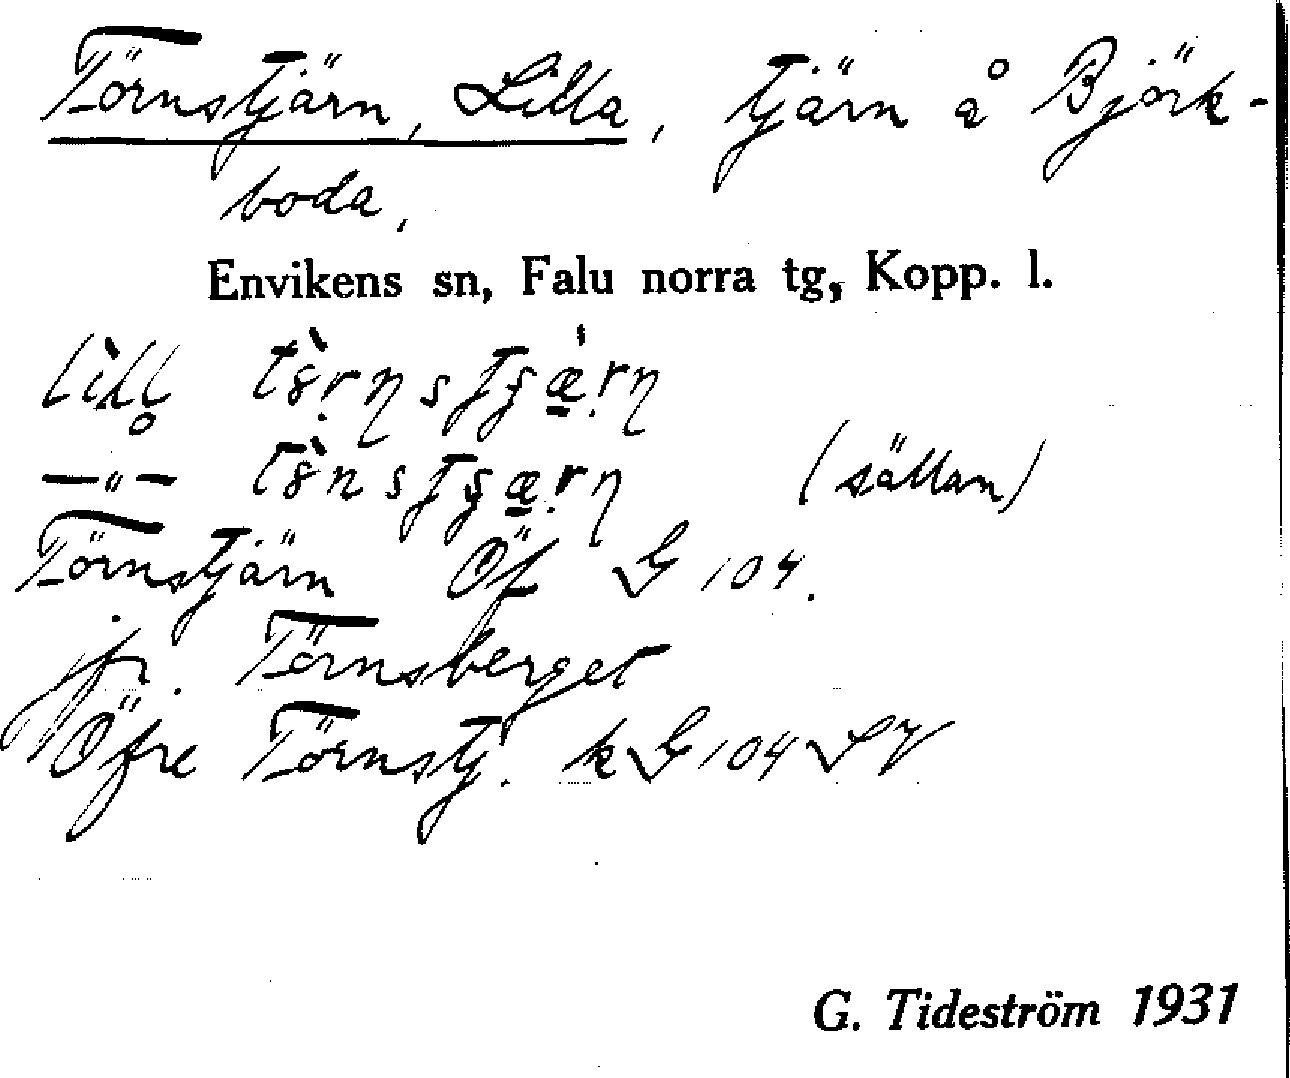 Törnstjärn, Lilla, tjärn å Björk-
boda,
Envikens sn, Falu norra tg, Kopp. l.
(sällan)
Törnstjärn Öf G 104.
jfr. Törnsberget
Öfre Törnstj. k G 104 SV
G. Tideström 1931